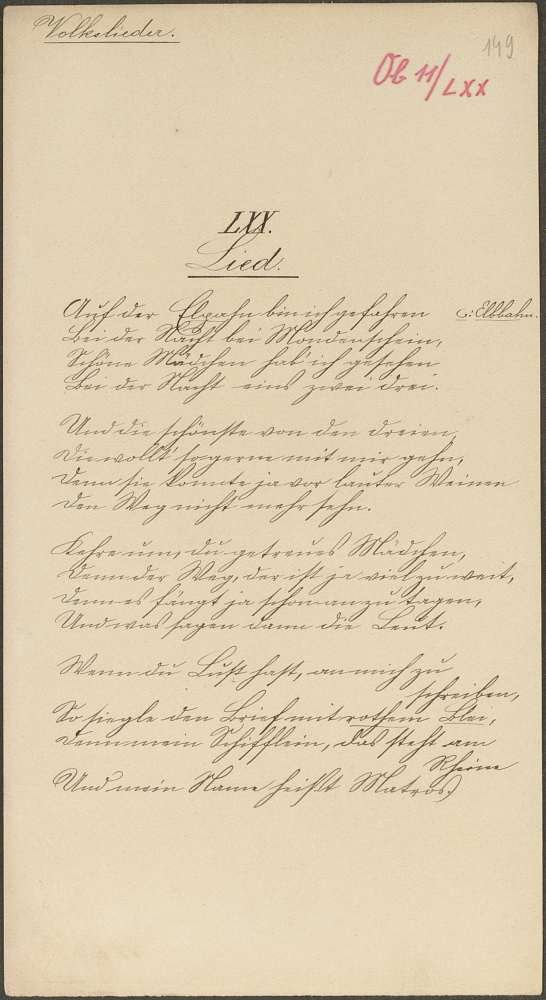 Volkslieder.
149
Ob 11/LXX
LXX.
Lied.
Auf der Elpahn bin ich gefahren c: Elbbahn.
Bei der Nacht bei Mondenschein,
Schöne Mädchen hab ich gesehen
Bei der Nacht eins zwei drei.
Und die schönste von den dreien,
Die wollt' so gerne mit mir gehn,
Denn sie konnte ja vor lauter Weinen
Den Weg nicht mehr sehn.
Kehre um, du getreues Mädchen,
Denn der Weg, der ist ja viel zu weit,
Denn es fängt ja schon an zu tagen,
Und was sagen dann die Leut.
Wenn du Lust hast, an mich zu
schreiben,
So siegle den Brief mit rothem Blei,
Denn mein Schifflein, das steht am
Rheine
Und mein Name heißt Matros.